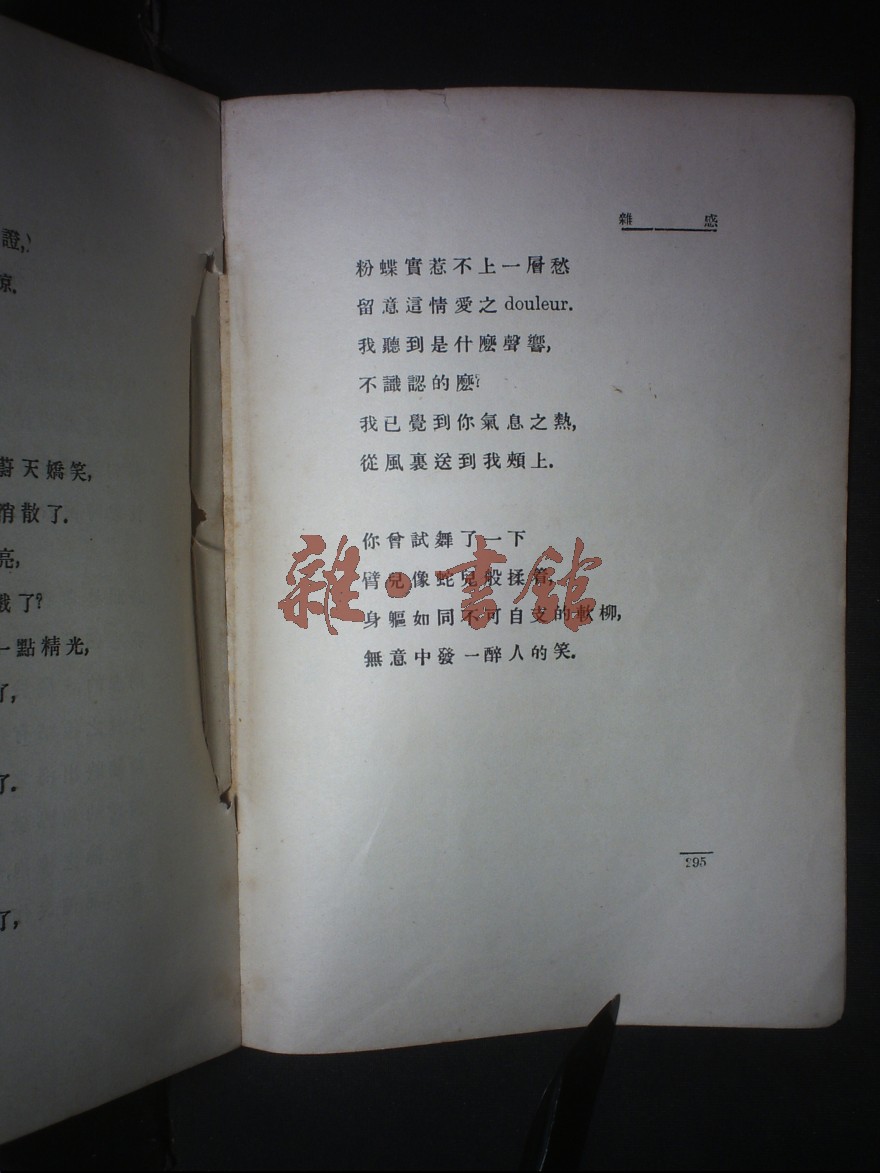 證,
涼.
蔚天嬌笑,
消散了.
亮,
一點精光,
了,
了.
了,
雜感
粉蝶實惹不上一層愁
留意這情愛之 douleur.
我聽到是什麽聲響,
不識認的麽?
我已覺到你氣息之熱,
從風裏送到我頰上.
你曾試舞了一下
臂兒像蛇兒般揉着,
身軀如同不可自支的軟柳,
無意中發一醉人的笑.
雜·書館
295